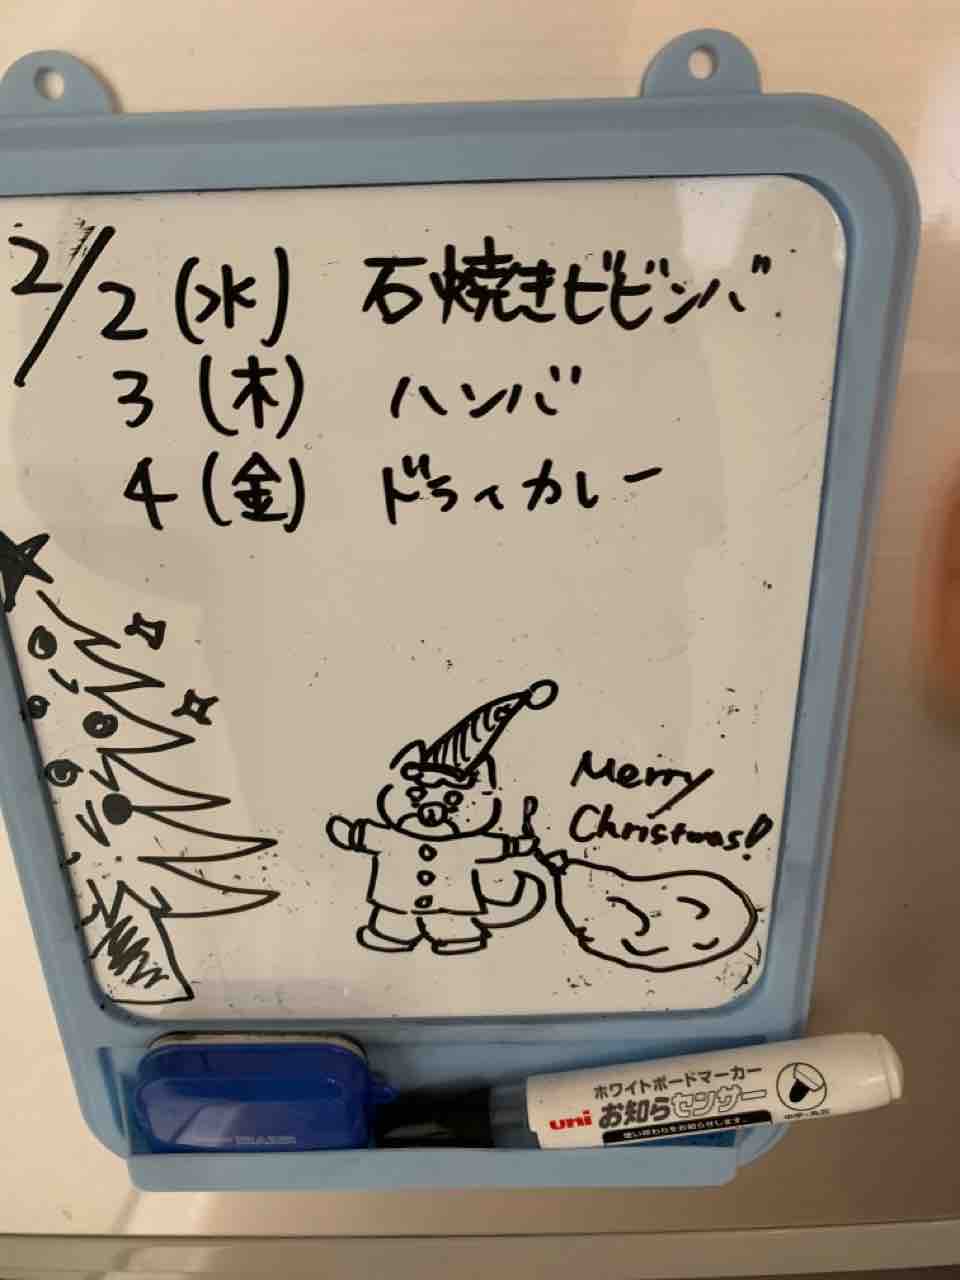 2/2 (水) 石焼きビビンバ
3 (木) ハンバ
4 (金) ドライカレー
Merry
Christmas!
ホワイトボードマーカー
uni お知らセンサー
使い終わりをお知らせします。